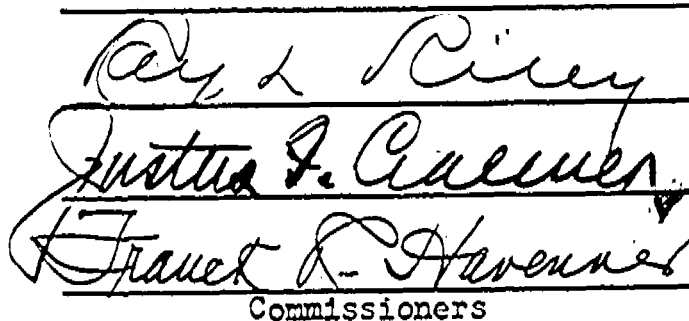 Ray L Riley
Justus F. Craemer
Franck R. Havenner
Commissioners